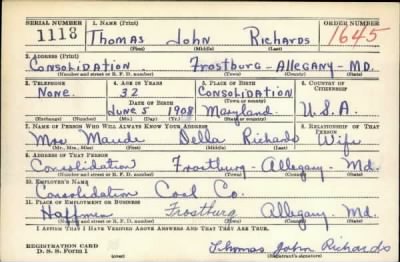 SERIAL NUMBER 1. NAME (Print) ORDER NUMBER
1118 Thomas John Richards 1645
(First) (Middle) (Last)
2. ADDRESS (Print)
CONSOLIDATION Frostburg - ALLEGANY - MD.
(Number and street or R. F. D. number) (Town) (County) (State)
3. TELEPHONE 4. AGE IN YEARS 5. PLACE OF BIRTH 6. COUNTRY OF CITIZENSHIP
None. 32 CONSOLIDATION
DATE OF BIRTH (Town or county)
June 5 1908 Maryland U.S.A.
(Exchange) (Number) (Mo.) (Day) (Yr.) (State or country)
7. NAME OF PERSON WHO WILL ALWAYS KNOW YOUR ADDRESS 8. RELATIONSHIP OF THAT PERSON
Mrs Maude Della Richards Wife
(Mr., Mrs., Miss) (First) (Middle) (Last)
9. ADDRESS OF THAT PERSON
Consolidation Frostburg - Allegany - Md.
(Number and street or R. F. D. number) (Town) (County) (State)
10. EMPLOYER'S NAME
Consolidation Coal Co.
11. PLACE OF EMPLOYMENT OR BUSINESS
Hoffman Frostburg Allegany. Md.
(Number and street or R. F. D. number) (Town) (County) (State)
I AFFIRM THAT I HAVE VERIFIED ABOVE ANSWERS AND THAT THEY ARE TRUE.
REGISTRATION CARD
D. S. S. Form 1 Thomas John Richards
(Registrant's signature)